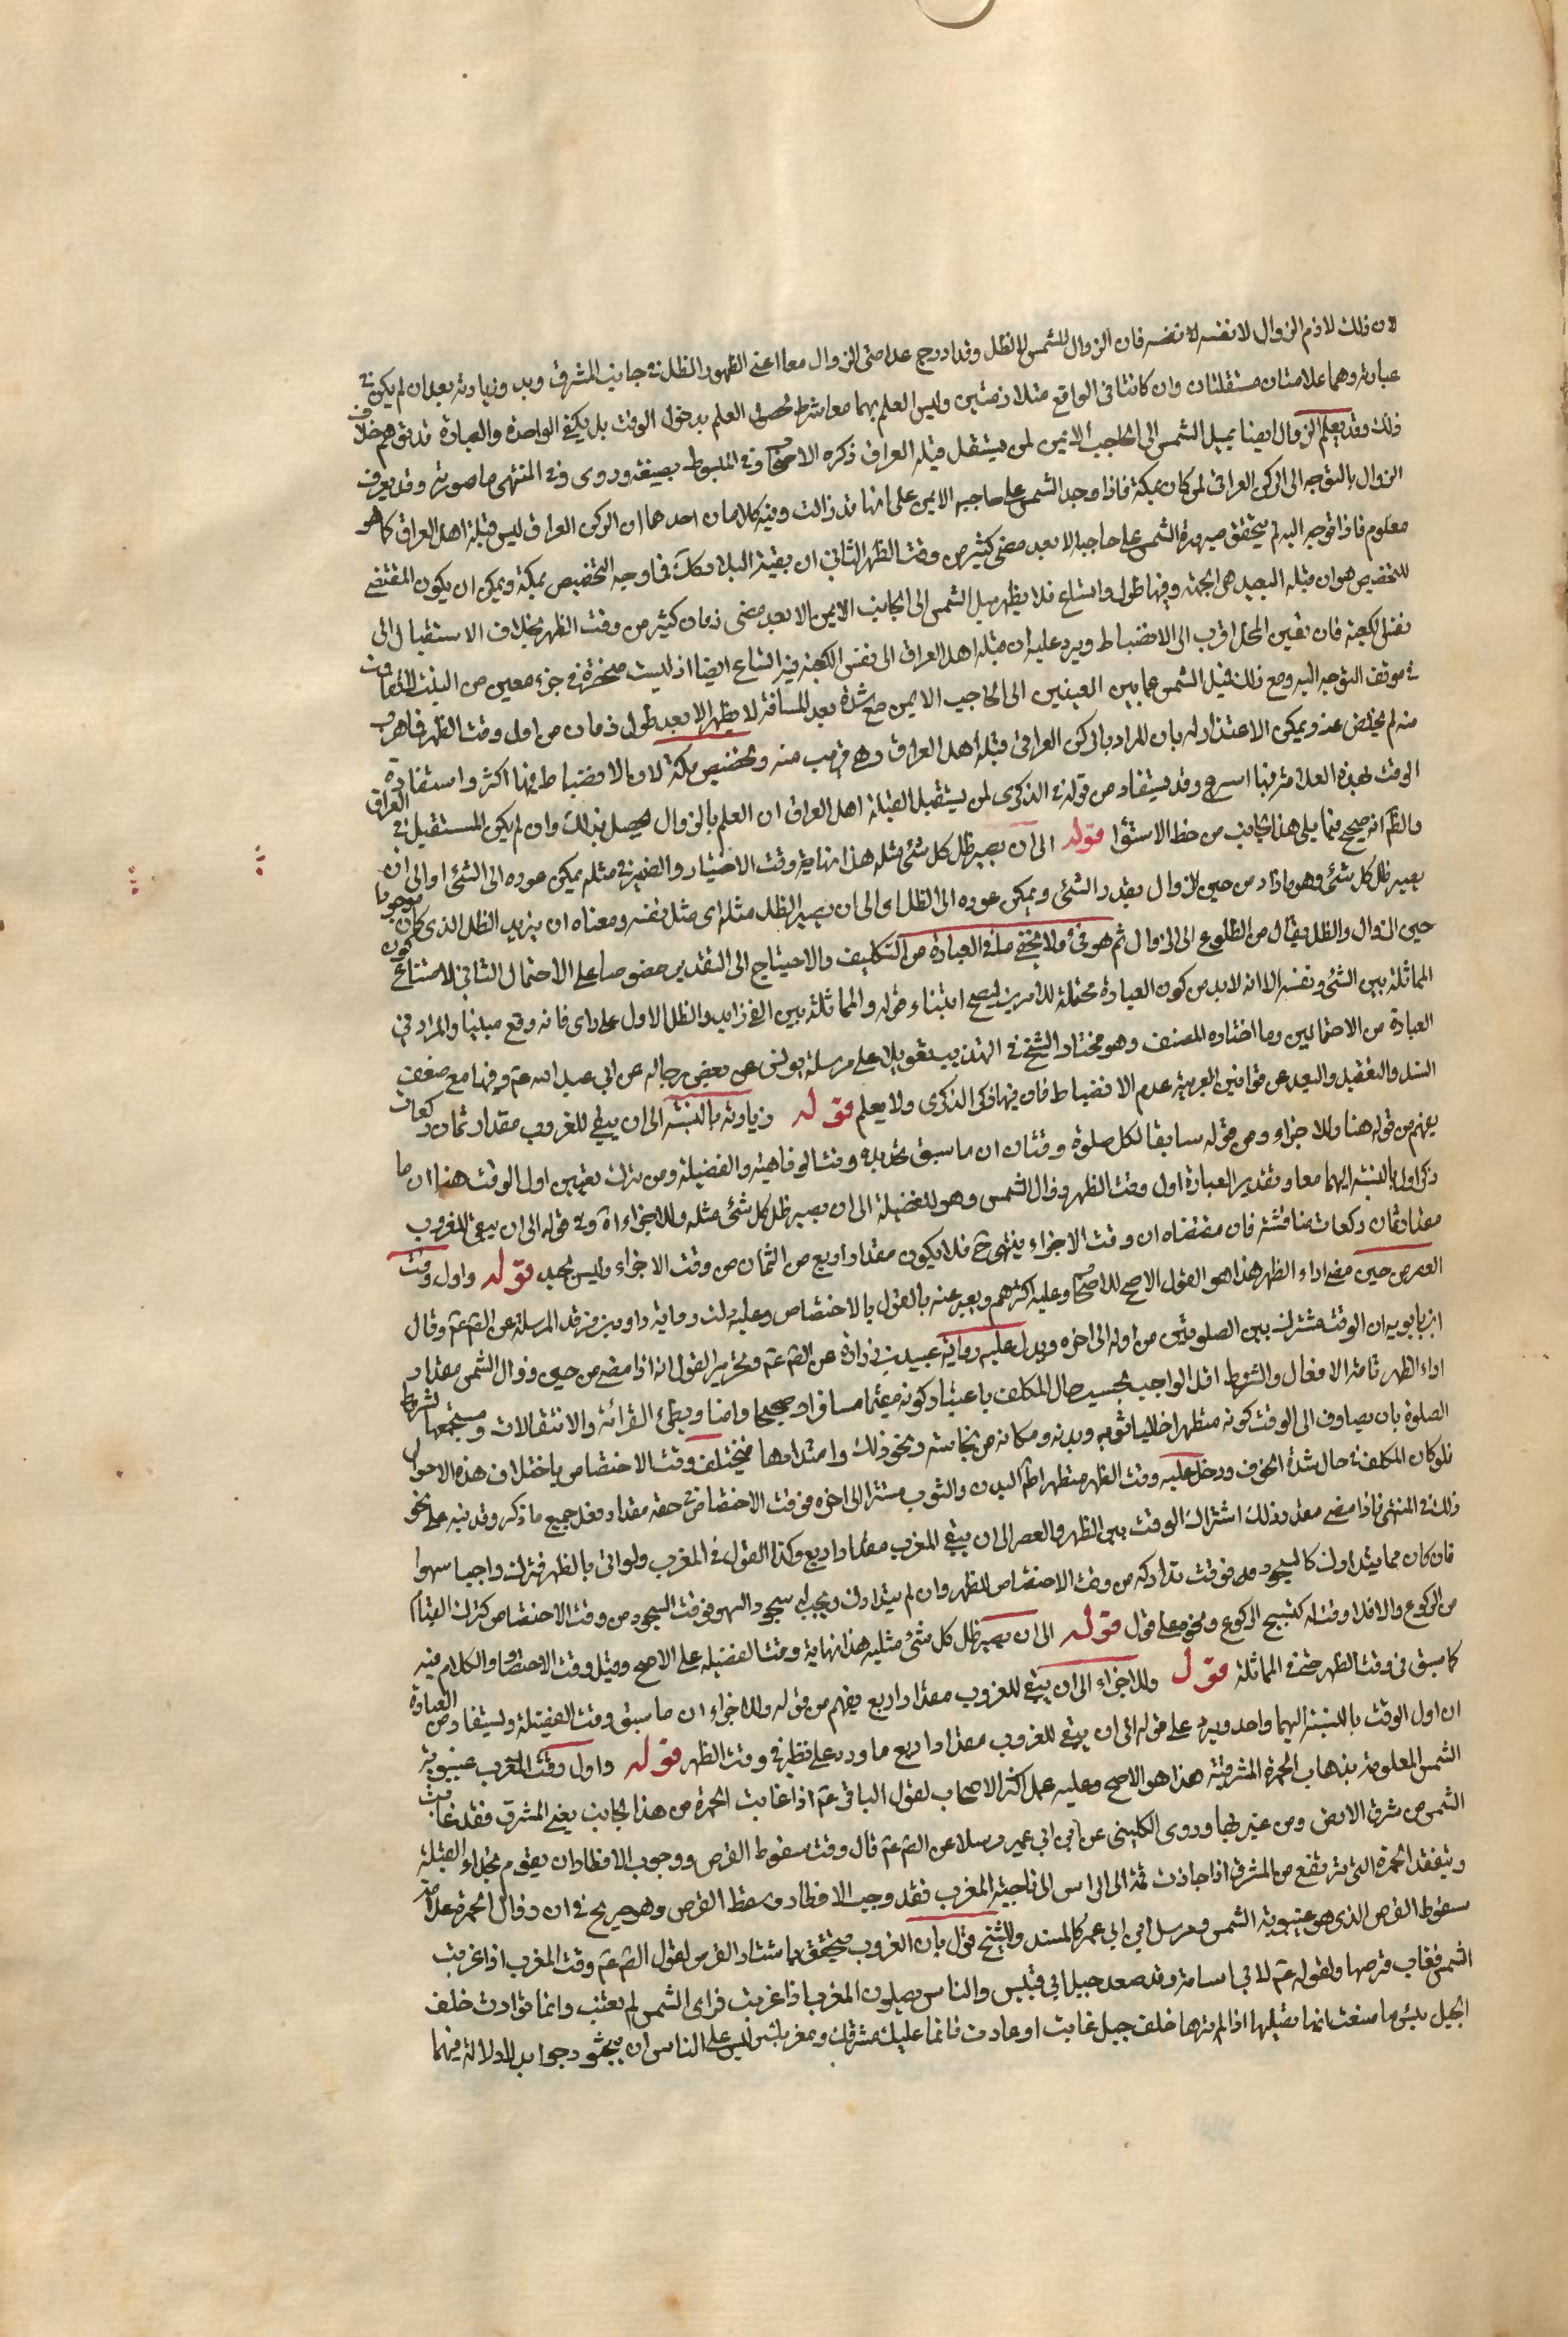 لان ذلك لازم الزوال لا نفسه لا نفسه فان الزوال للشمس لا للظل وقد ادرج علامتى الزوال معا اعنى الظهور الظل فى جانب المشرق وبد وزيادته بعد ان لم يكن فى
عبارته وهما علامتان مستقلتان وان كانتا فى الواقع متلازمتين وليس العلم بهما معا شرط لحصول العلم بدخول الوقت بل يكفى الواحدة والعبارة قد توهم خلاف
ذلك وقد يعلم الزوال ايضا بميل الشمس الى الحاجب الايمن لمن يستقبل قبلة العراق ذكره الاصحاب وفى المبسوط بصيغة وروى وفى المنتهى ما صورته وقد يعرف
الزوال بالتوجه الى الركن العراقى لمن كان بمكة فاذا وجد الشمس على حاجبه الايمن علم انها قد زالت وفيه كلامان احدهما ان الركن العراقى ليس قبلة اهل العراق كما هو
معلوم فاذا توجه اليه لم يتحقق صيرورة الشمس على حاجبه الا بعد مضى كثير من وقت الظهر الثانى ان بقية البلاد كك فما وجه التخصيص بمكة ويمكن ان يكون المقتضى
للتخصيص هو ان قبلة البعيد هى الجهة وفيها طول واتساع فلا يظهر ميل الشمس الى الجانب الايمن الا بعد مضى زمان كثير من وقت الظهر بخلاف الاستقبال الى
نفس الكعبة فان تعين المحل اقرب الى الانضباط ويرد عليه ان قبلة اهل العراق الى نفس الكعبة فيه اتساع ايضا اذ ليست منحصرة فى جزء معين من البيت
فى موقف التوجه اليه ومع ذلك فميل الشمس عما بين العينين الى الحاجب الايمن مع شدة بعد المسافة لا يظهر الا بعد طول زمان من اول وقت الظهر فاهرب
منه لم يخلص عنه ويمكن الاعتذار له بان المراد بالركن العراقى قبلة اهل العراق وهى قريب منه وتخصيص مكة لان الانضباط فيها اكثر واستفادة
الوقت بهذه العلامة فيها اسرع وقد يستفاد من قوله فى الذكرى لمن يستقبل القبلة اهل العراق ان العلم بالزوال يحصل بذلك وان لم يكن المستقبل فى العراق
والظ انه صحيح فيما يلى هذا الجانب من خط الاستوا قوله الى ان يصير ظل كل شئ مثله هذا نهاية وقت الاختيار والضمير فى مثله يمكن عوده الى الشئ اى الى ان
يصير ظل كل شئ وهو ما زاد من حين الزوال بقدر الشئ ويمكن عوده الى الظل اى الى ان يصير الظل مثله اى مثل نفسه ومعناه ان يزيد الظل الذى كان موجودا
حين الزوال والظل يقال من الطلوع الى الزوال ثم هو فئ ولا يخفى ما فى العبارة من التكليف والاحتياج الى التقدير خصوصا على الاحتمال الثانى لامتناع كون
المماثلة بين الشئ ونفسه الا انه لابد من كون العبارة محتملة للامرين ليصح ابتناء قوله والمماثلة بين الفئ زايد والظل الاول على راى فانه وقع مبينا والمراد فى
العبارة من الاحتمالين وما اختاره المصنف وهو مختار الشيخ فى التهذيب تعويلا على مرسلة يونس عن بعض رجاله عن ابى عبد الله عم وفيها مع ضعف
السند والتعقيد والبعد عن قوانين العربية عدم الانضباط فان فيها ذكر الذكرى ولا يعلم قوله وزيادته بالنسبة الى ان يبقى للغروب مقدار ثمان ركعات
يفهم من قوله هنا وللاجزاء ومن قوله سابقا لكل صلوة وقتان ان ما سبق تحديده وقت الرفاهية والفضيلة ومن ترك تعيين اول الوقت هنا ان ما
ذكر اول بالنسبة اليهما معا وتقدير العبارة اول وقت الظهر زوال الشمس وهو للفضيلة الى ان يصير ظل كل شئ مثله وللاجزاء اه وفى قوله الى ان يبقى للغروب
مقدار ثمان ركعات مناقشة فان مقتضاه ان وقت الاجزاء ينتهى ح فلا يكون مقدار اربع من الثمان من وقت الاجزاء وليس بجيد قوله واول وقت
العصر من حين مضى اداء الظهر هذا هو القول الاصح للاصحاب وعليه اكثرهم ويعبر عنه بالقول بالاختصاص وعليه دلت رواية داود بن فرقد المرسلة عن الصم عم وقال
ابن بابويه ان الوقت مشترك بين الصلوتين من اوله الى اخره ويدل عليه رواية عبيد بن زرارة عن الصم عم وتحرير القول انه اذا مضى من حين زوال الشمس مقدار
اداء الظهر تامة الافعال والشروط اقل الواجب بحسب حال المكلف باعتبار كونه مقيما مسافرا وصحيحا وامنا وبطئ القرائة والانتقالات ومستجمعا لشروط
الصلوة بان يصادف الى الوقت كونه متطهرا خاليا ثوبه وبدنه ومكانه من نجاسة ونحو ذلك وامتدادها فيختلف وقت الاختصاص باختلاف هذه الاحوال
فلو كان المكلف فى حال شدة الخوف ودخل عليه وقت الظهر متطهرا طاهر البدن والثوب مستترا الى اخره فوقت الاختصاص فى حقه مقدار فعل جميع ما ذكر وقد نبه على نحو
ذلك فى المنتهى فاذا مضى مقدر ذلك اشترك الوقت بين الظهر والعصر الى ان يبقى المغرب مقدار اربع وكذا القول فى المغرب ولو اتى بالظهر فترك واجبا سهوا
فان كان مما يتدارك كالسجود فوقت تداركه من وقت الاختصاص للظهر وان لم يتدارك ويجب له سجود السهو فوقت السجود من وقت الاختصاص كترك القيام
من الركوع والا فلا وقت له كتسبيح الركوع ونحوه على قول قوله الى ان يصير ظل كل شئ مثليه هذا نهاية وقت الفضيلة على الاصح وقيل وقت الاختيار والكلام فيه
كما سبق فى وقت الظهر حتى فى المماثلة قوله وللاجزاء الى ان يبقى للغروب مقدار اربع يفهم من قوله وللاجزاء ان ما سبق وقت الفضيلة ويستفاد من العبارة
ان اول الوقت بالنسبة اليهما واحد ويرد على قوله الى ان يبقى للغروب مقدار اربع ما ورد على نظيره فى وقت الظهر قوله واول وقت المغرب غيبوبة
الشمس المعلومة بذهاب الحمرة المشرقية هذا هو الاصح وعليه عمل اكثر الاصحاب لقول الباقر عم اذا غابت الحمرة من هذا الجانب يعنى المشرق فقد غابت
الشمس من شرق الارض ومن غربها وروى الكلينى عن ابن ابى عمير مرسلا عن الصم عم قال وقت سقوط القرص ووجوب الافطار ان يقوم بحذاء القبلة
ويتفقد الحمرة التى ترتفع من المشرق اذا جاذت قمة الراس الى ناحية المغرب فقد وجب الافطار وسقط القرص وهو صريح فى ان زوال الحمرة علامة
سقوط القرص الذى هو غيبوبة الشمس ومرسل ابن ابى عمير كالمسند وللشيخ قول بان الغروب يتحقق باستتار القرص لقول الصم عم وقت المغرب اذا غربت
الشمس فغاب قرصها ولقوله عم لابى اسامة وقد صعد جبل ابى قبيس والناس يصلون المغرب اذا غربت فراى الشمس لم تغب وانما توارت خلف
الجبل بئس ما صنعت انما تصليها اذا لم ترها خلف جبل غابت او غارت فانما عليك مشرقك ومغربك وليس على الناس ان يبحثوا وجوابه لا دلالة فيهما